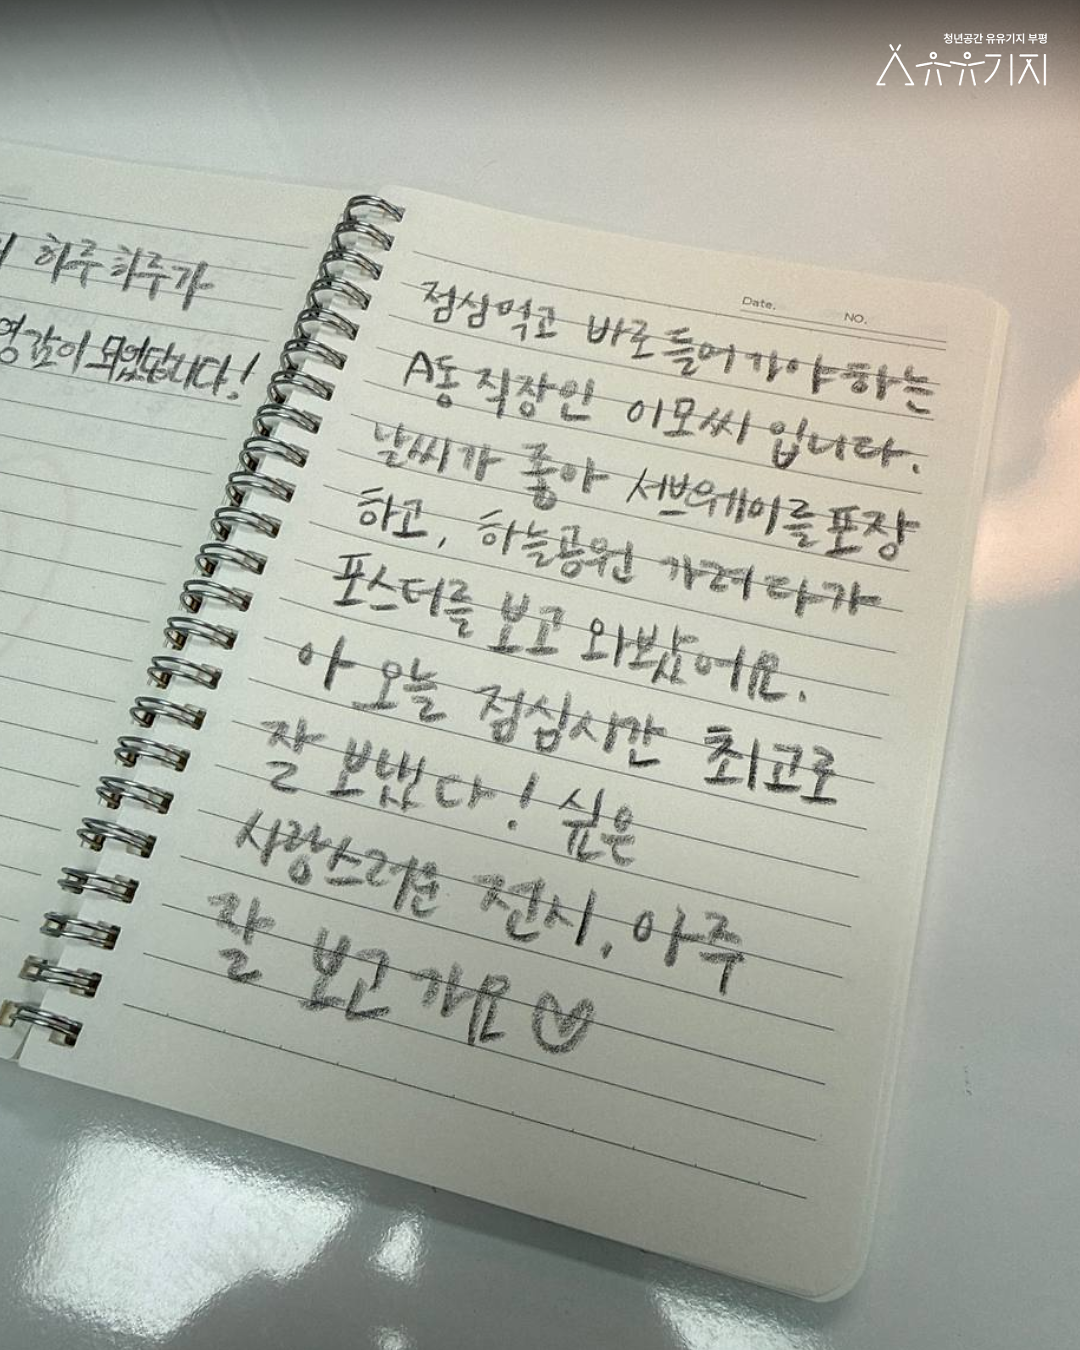 청년공간 유유기지 부평
유유기지
하루하루가
영감이 되었답니다!
Date.
NO.
점심먹고 바로 들어가야 하는
A동 직장인 이모씨 입니다.
날씨가 좋아 서브웨이를 포장
하고, 하늘공원 가려다가
포스터를 보고 와봤어요.
아 오늘 점심시간 최고로
잘 보냈다! 싶은
사랑스러운 전시, 아주
잘 보고 가요